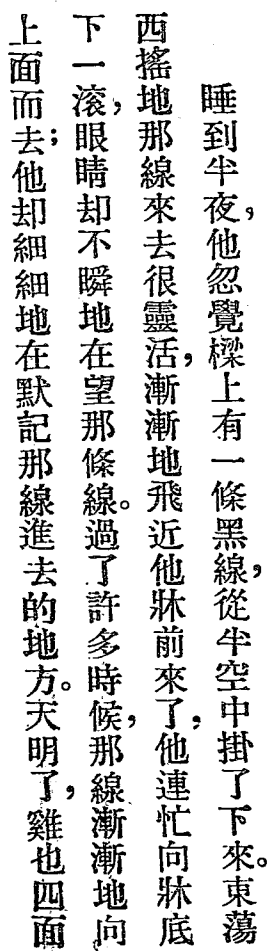 睡到半夜，他忽覺樑上有一條黑線，從半空中掛了下來。東蕩
西搖地那線來去很靈活，漸漸地飛近他牀前來了，他連忙向牀底
下一滚，眼睛却不瞬地在望那條線。過了許多時候，那線漸漸地向
上面而去；他却細細地在默記那線進去的地方。天明了，雞也四面